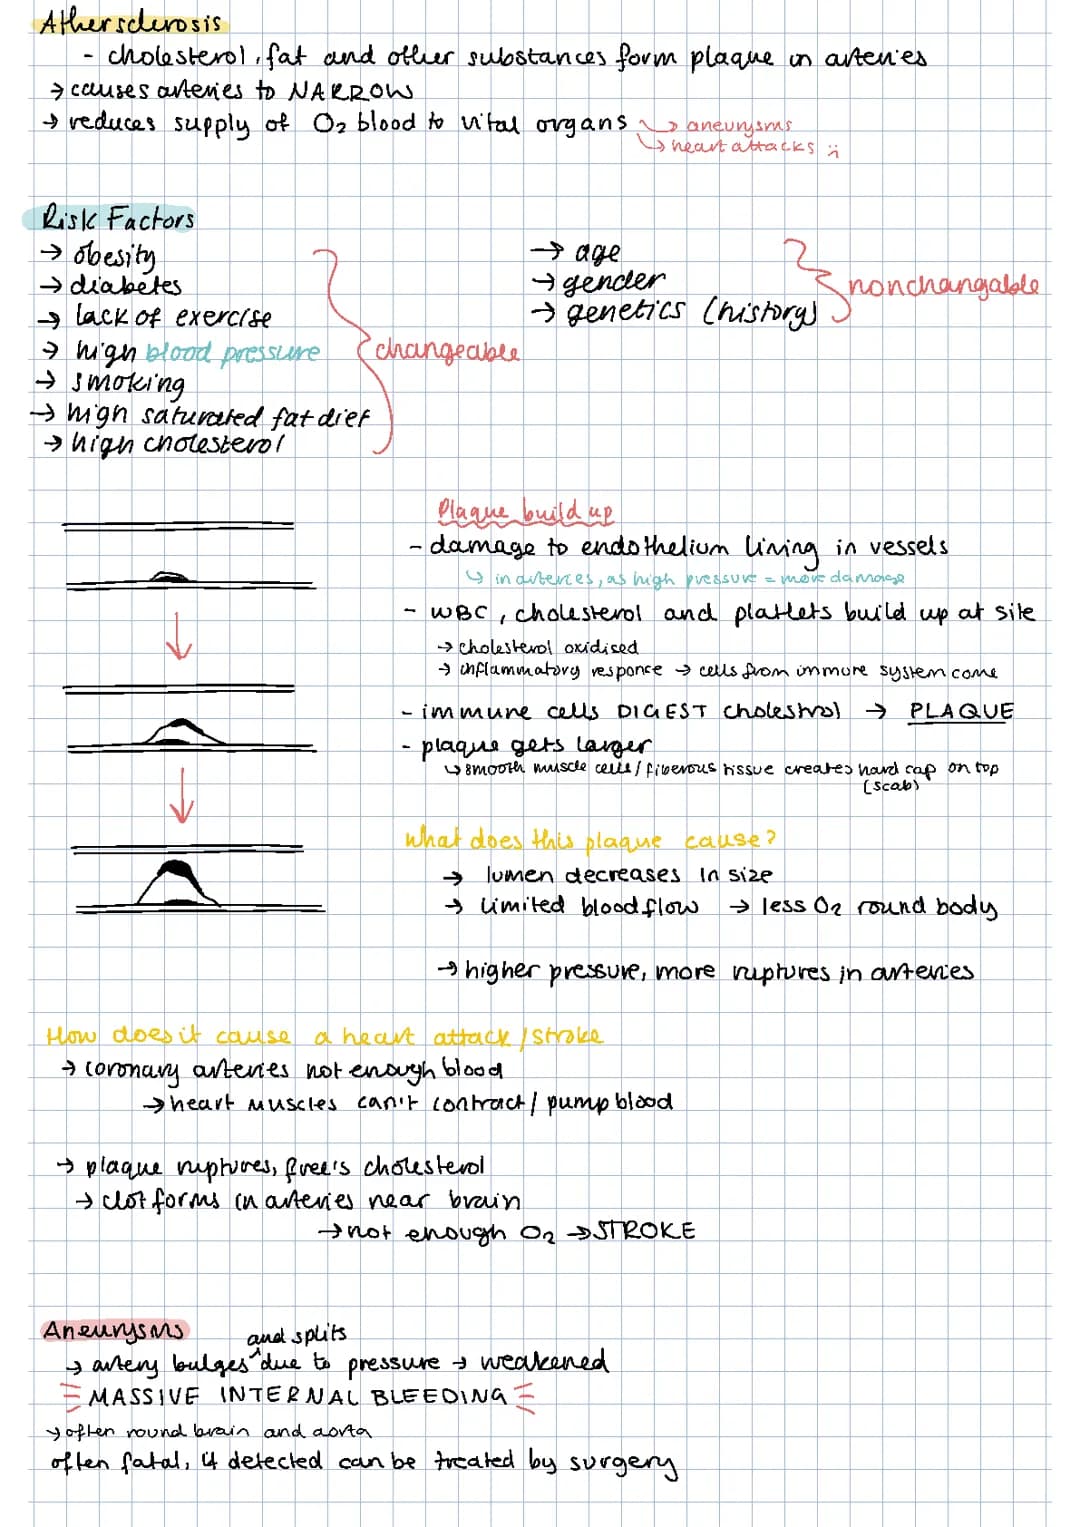 Athersclerosis
- cholesterol, fat and other substances form plaque in arteries
→ causes arteries to NARROW
→ reduces supply of O2 blood to vital organs → aneurysms
→ heart attacks :(
Risk Factors
→ obesity
→ diabetes
→ lack of exercise
→ high blood pressure
→ smoking
→ high saturated fat diet
→ high cholesterol
changeable
→ age
→ gender
→ genetics (history)
nonchangable
Plaque build up
- damage to endothelium lining in vessels
↳ in arteries, as high pressure = more damage
- WBC, cholesterol and platlets build up at site
→ cholesterol oxidised
→ inflammatory responce → cells from immune system come
- immune cells DIGEST cholestrol → PLAQUE
- plaque gets larger
↳ smooth muscle cells / fiberous tissue creates hard cap on top
(scab)
What does this plaque cause?
→ lumen decreases in size
→ limited bloodflow → less O2 round body
→ higher pressure, more ruptures in arteries
How does it cause a heart attack / stroke
→ coronary arteries not enough blood
→ heart muscles can't contract / pump blood
→ plaque ruptures, free's cholesterol
→ clot forms in arteries near brain
→ not enough O2 → STROKE
Aneurysms
and splits
→ artery bulges ^ due to pressure → weakened
MASSIVE INTERNAL BLEEDING
→ often round brain and aorta
often fatal, if detected can be treated by surgery